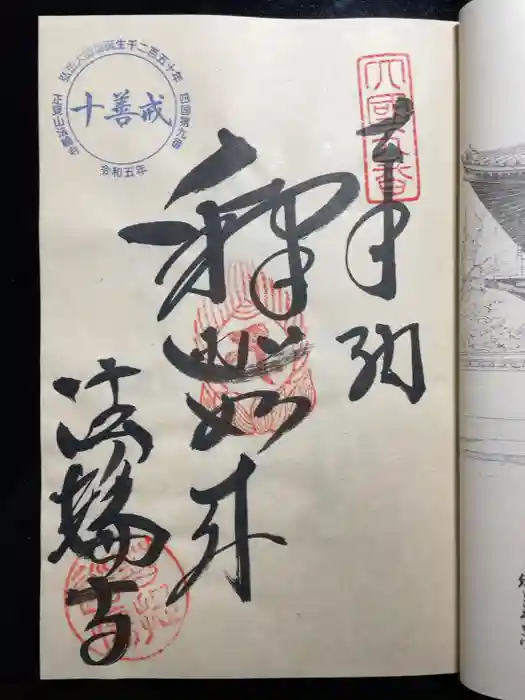 四國九番
奉納
釋迦如来
法輪寺
弘法大師御誕生千二百五十年
四国第九番
十善戒
正覚山法輪寺
令和五年